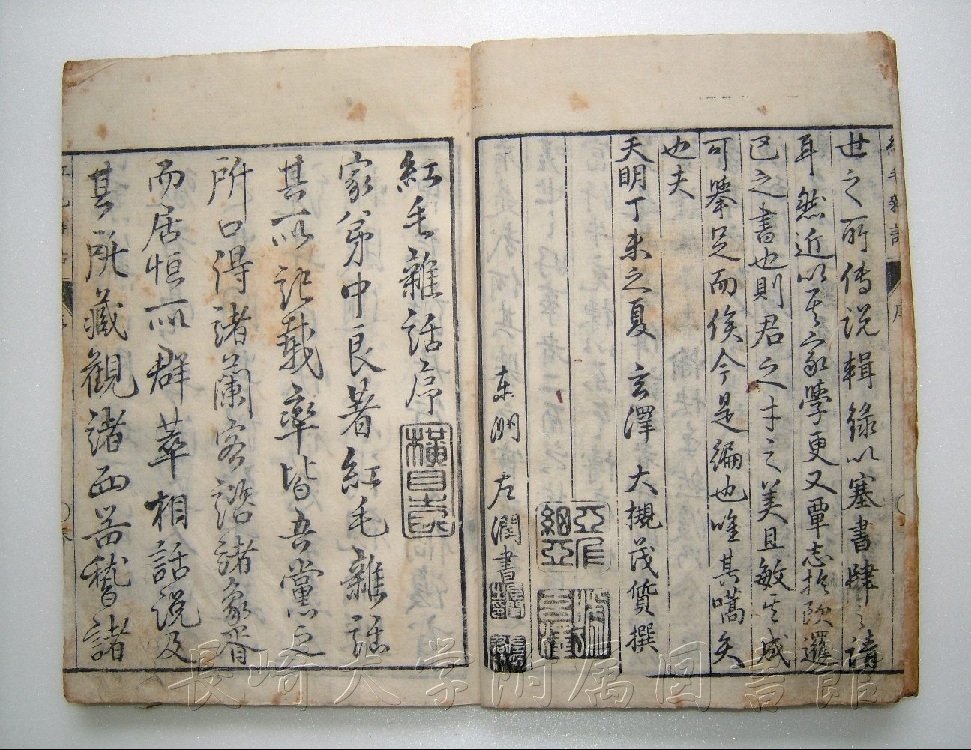 世之所傳説輯録以塞書肆之請
耳然近以其家學更又覃志於欧邏
巴之書也則君之才之美且敏其成
可舉足而俟今是編也唯其嚆矢
也夫
天明丁未之夏 玄澤 大槻茂質撰
東洲 左潤書
紅毛雜話序
家弟中良著紅毛雜話
其所記載率皆吾黨之
所口得諸蘭客諮諸象胥
而居恒所群萃相話説及
其所藏觀諸西器稽諸
長崎大学附属図書館